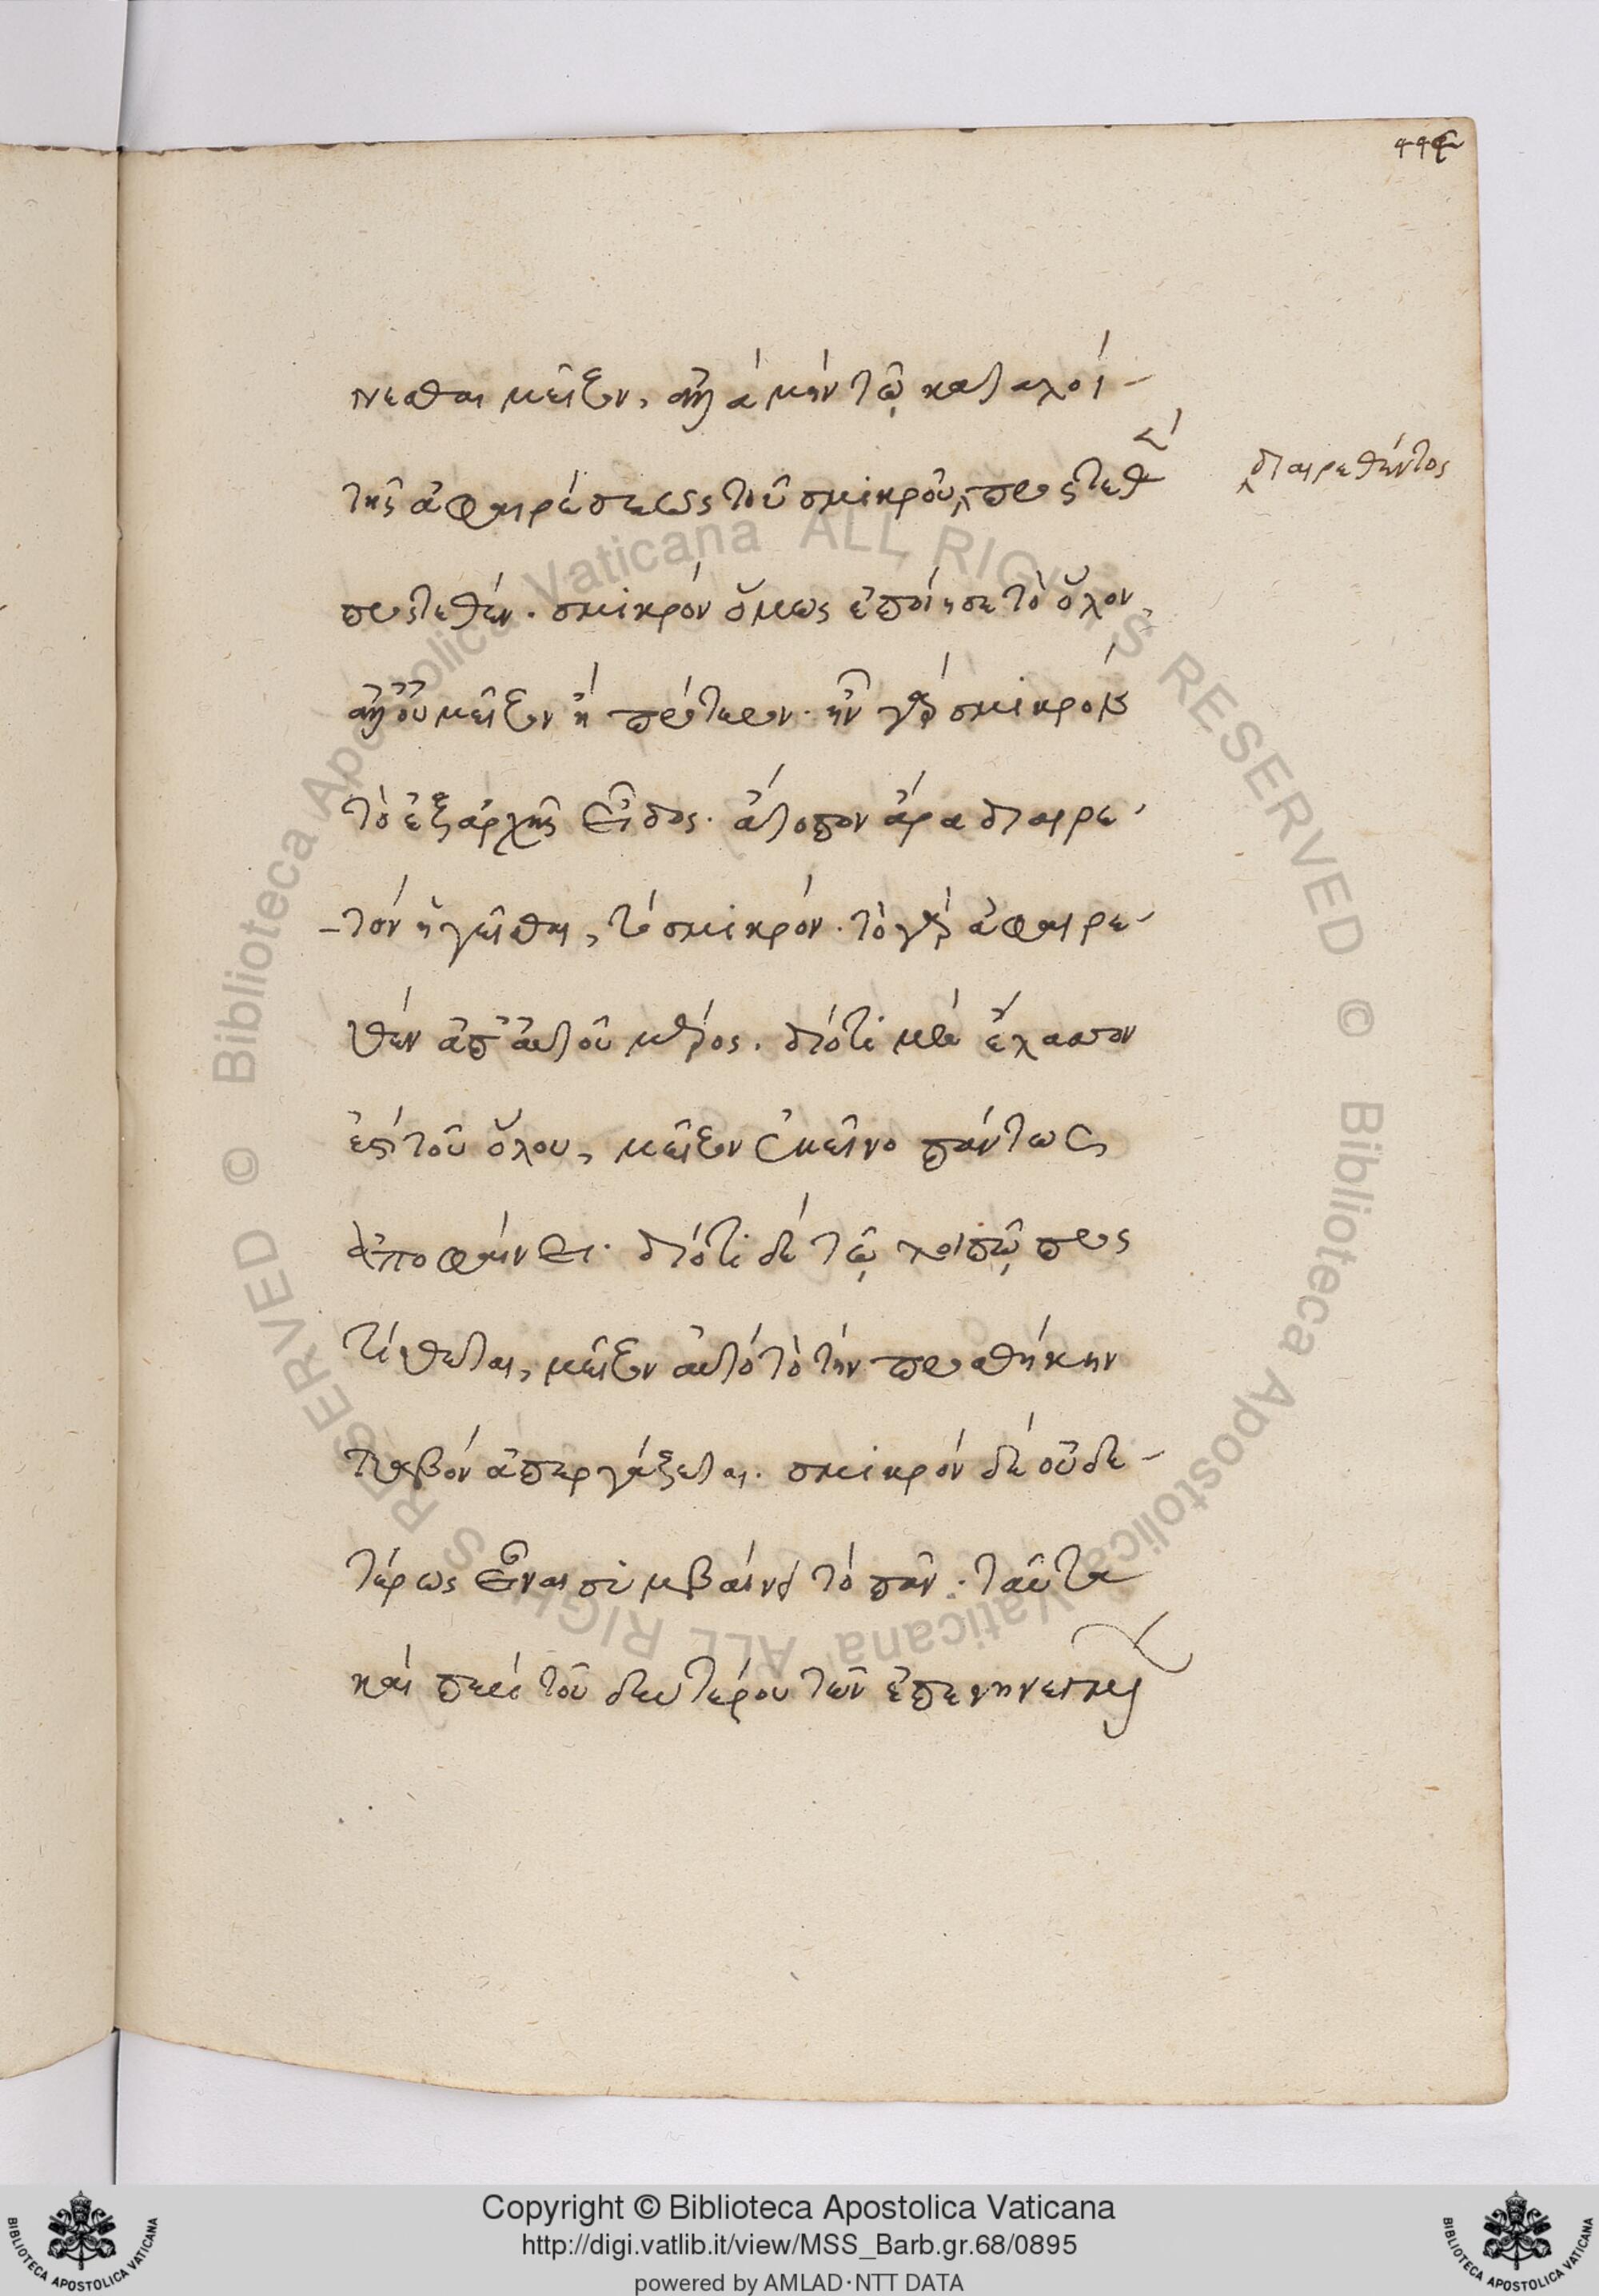 449
νεσθαι μεῖζον, ἀλλὰ μὴν τῷ καταλοί-
τῆς ἀφαιρέσεως τοῦ σμικροῦ, προστεθὲν
διαιρεθέντος
προστεθέν. σμικρὸν ὅμως ἐποίησε τὸ ὅλον,
ἀλλ' οὐ μεῖζον ἢ πρότερον. ἦν γὰρ σμικρὸν
τὸ ἐξ ἀρχῆς εἶδος. ἄτοπον ἄρα διαιρε-
-τὸν ἡγεῖσθαι, τὸ σμικρόν. τὸ γὰρ ἀφαιρε-
θὲν ἀπ' αὐτοῦ μέρος. διότι μὲν ἔλασσον
ἐστὶ τοῦ ὅλου, μεῖζον ἐκεῖνο πάντως
ἀποφαίνει. διότι δὲ τῷ λοιπῷ προς
τίθεται, μεῖζον αὐτὸ τὸ τὴν προσθήκην
λαβὸν ἀπεργάζεται. σμικρὸν δὲ οὐδε-
τέρως εἶναι συμβαίνει τὸ πᾶν. ταῦτα
καὶ περὶ τοῦ δευτέρου τῶν
Copyright © Biblioteca Apostolica Vaticana
http://digi.vatlib.it/view/MSS_Barb.gr.68/0895
powered by AMLAD·NTT DATA
BIBLIOTECA APOSTOLICA VATICANA
BIBLIOTECA APOSTOLICA VATICANA
© Biblioteca Apostolica Vaticana ALL RIGHTS RESERVED © Biblioteca Apostolica Vaticana ALL RIGHTS RESERVED